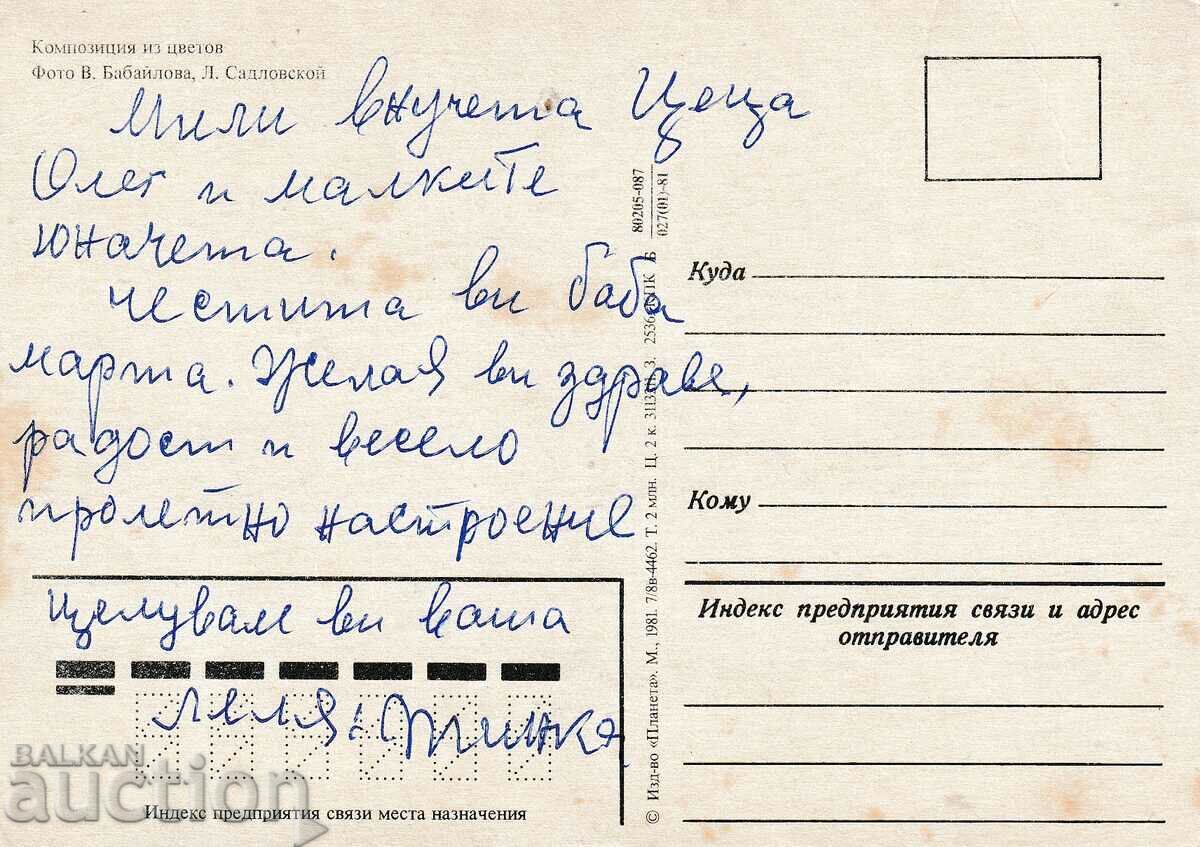 Композиция из цветов
Фото В. Бабайлова, Л. Садловской
Мили внучета Цеца
Олег и малките
юначета.
честита ви баба
марта. Желая ви здраве,
радост и весело
пролетно настроение
Целувам ви ваша
леля:
Индекс предприятия связи места назначения
© Изд-во «Планета». М., 1981. 7/8в-4462. Т. 2 млн. Ц. 2 к. З.
80205-087
027(01)-81
Куда
Кому
Индекс предприятия связи и адрес
отправителя
BALKAN
auction